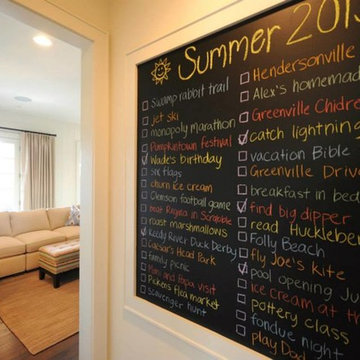 Summer 201
swamp rabbit trail
jet ski
monopoly marathon
Pumpkintown Festival
Wade's birthday
six flags
churn ice cream
Clemson football game
beat Regina in Scrabble
roast marshmallows
Reedy River Duck Derby
Caesar's Head Park
family picnic
Mimi and Papa visit
Pickens flea market
scavenger hunt
Hendersonville
Alex's homemad
Greenville Chidre
catch lightning
vacation Bible
Greenville Drive
breakfast in bed
find big dipper
read Huckleber
Folly Beach
fly Joe's kite
pool opening Ju
ice cream at th
pottery class
fondue night
play Dad